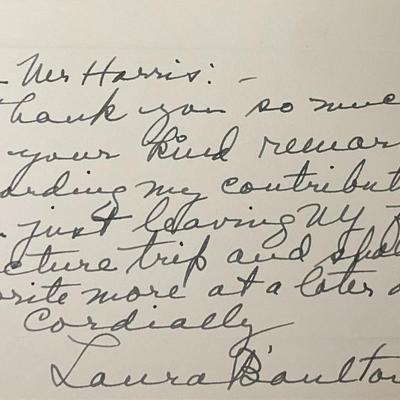 Mr Harris: -
thank you so muc
your kind remar
arding my contribut
just leaving NY f
cture trip and shal
write more at a later d
Cordially
Laura Boulton